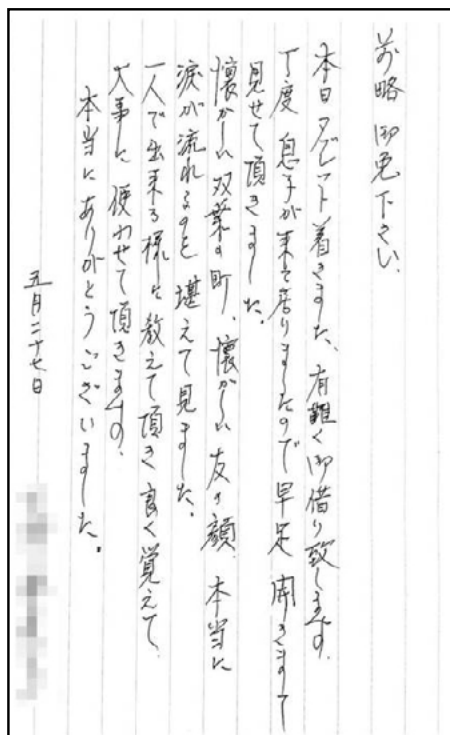 前略 御免下さい、
本日タブレット着きました、有難く御借り致します。
丁度 息子が来て居りましたので早足 開きまして
見せて頂きました。
懐かしい双葉の町、懐かしい友の顔 本当に
涙が流れるのを堪えて見ました。
一人で出来る様に教えて頂き良く覚えて
大事に使わせて頂きます。
本当にありがとうございました。
五月二十七日